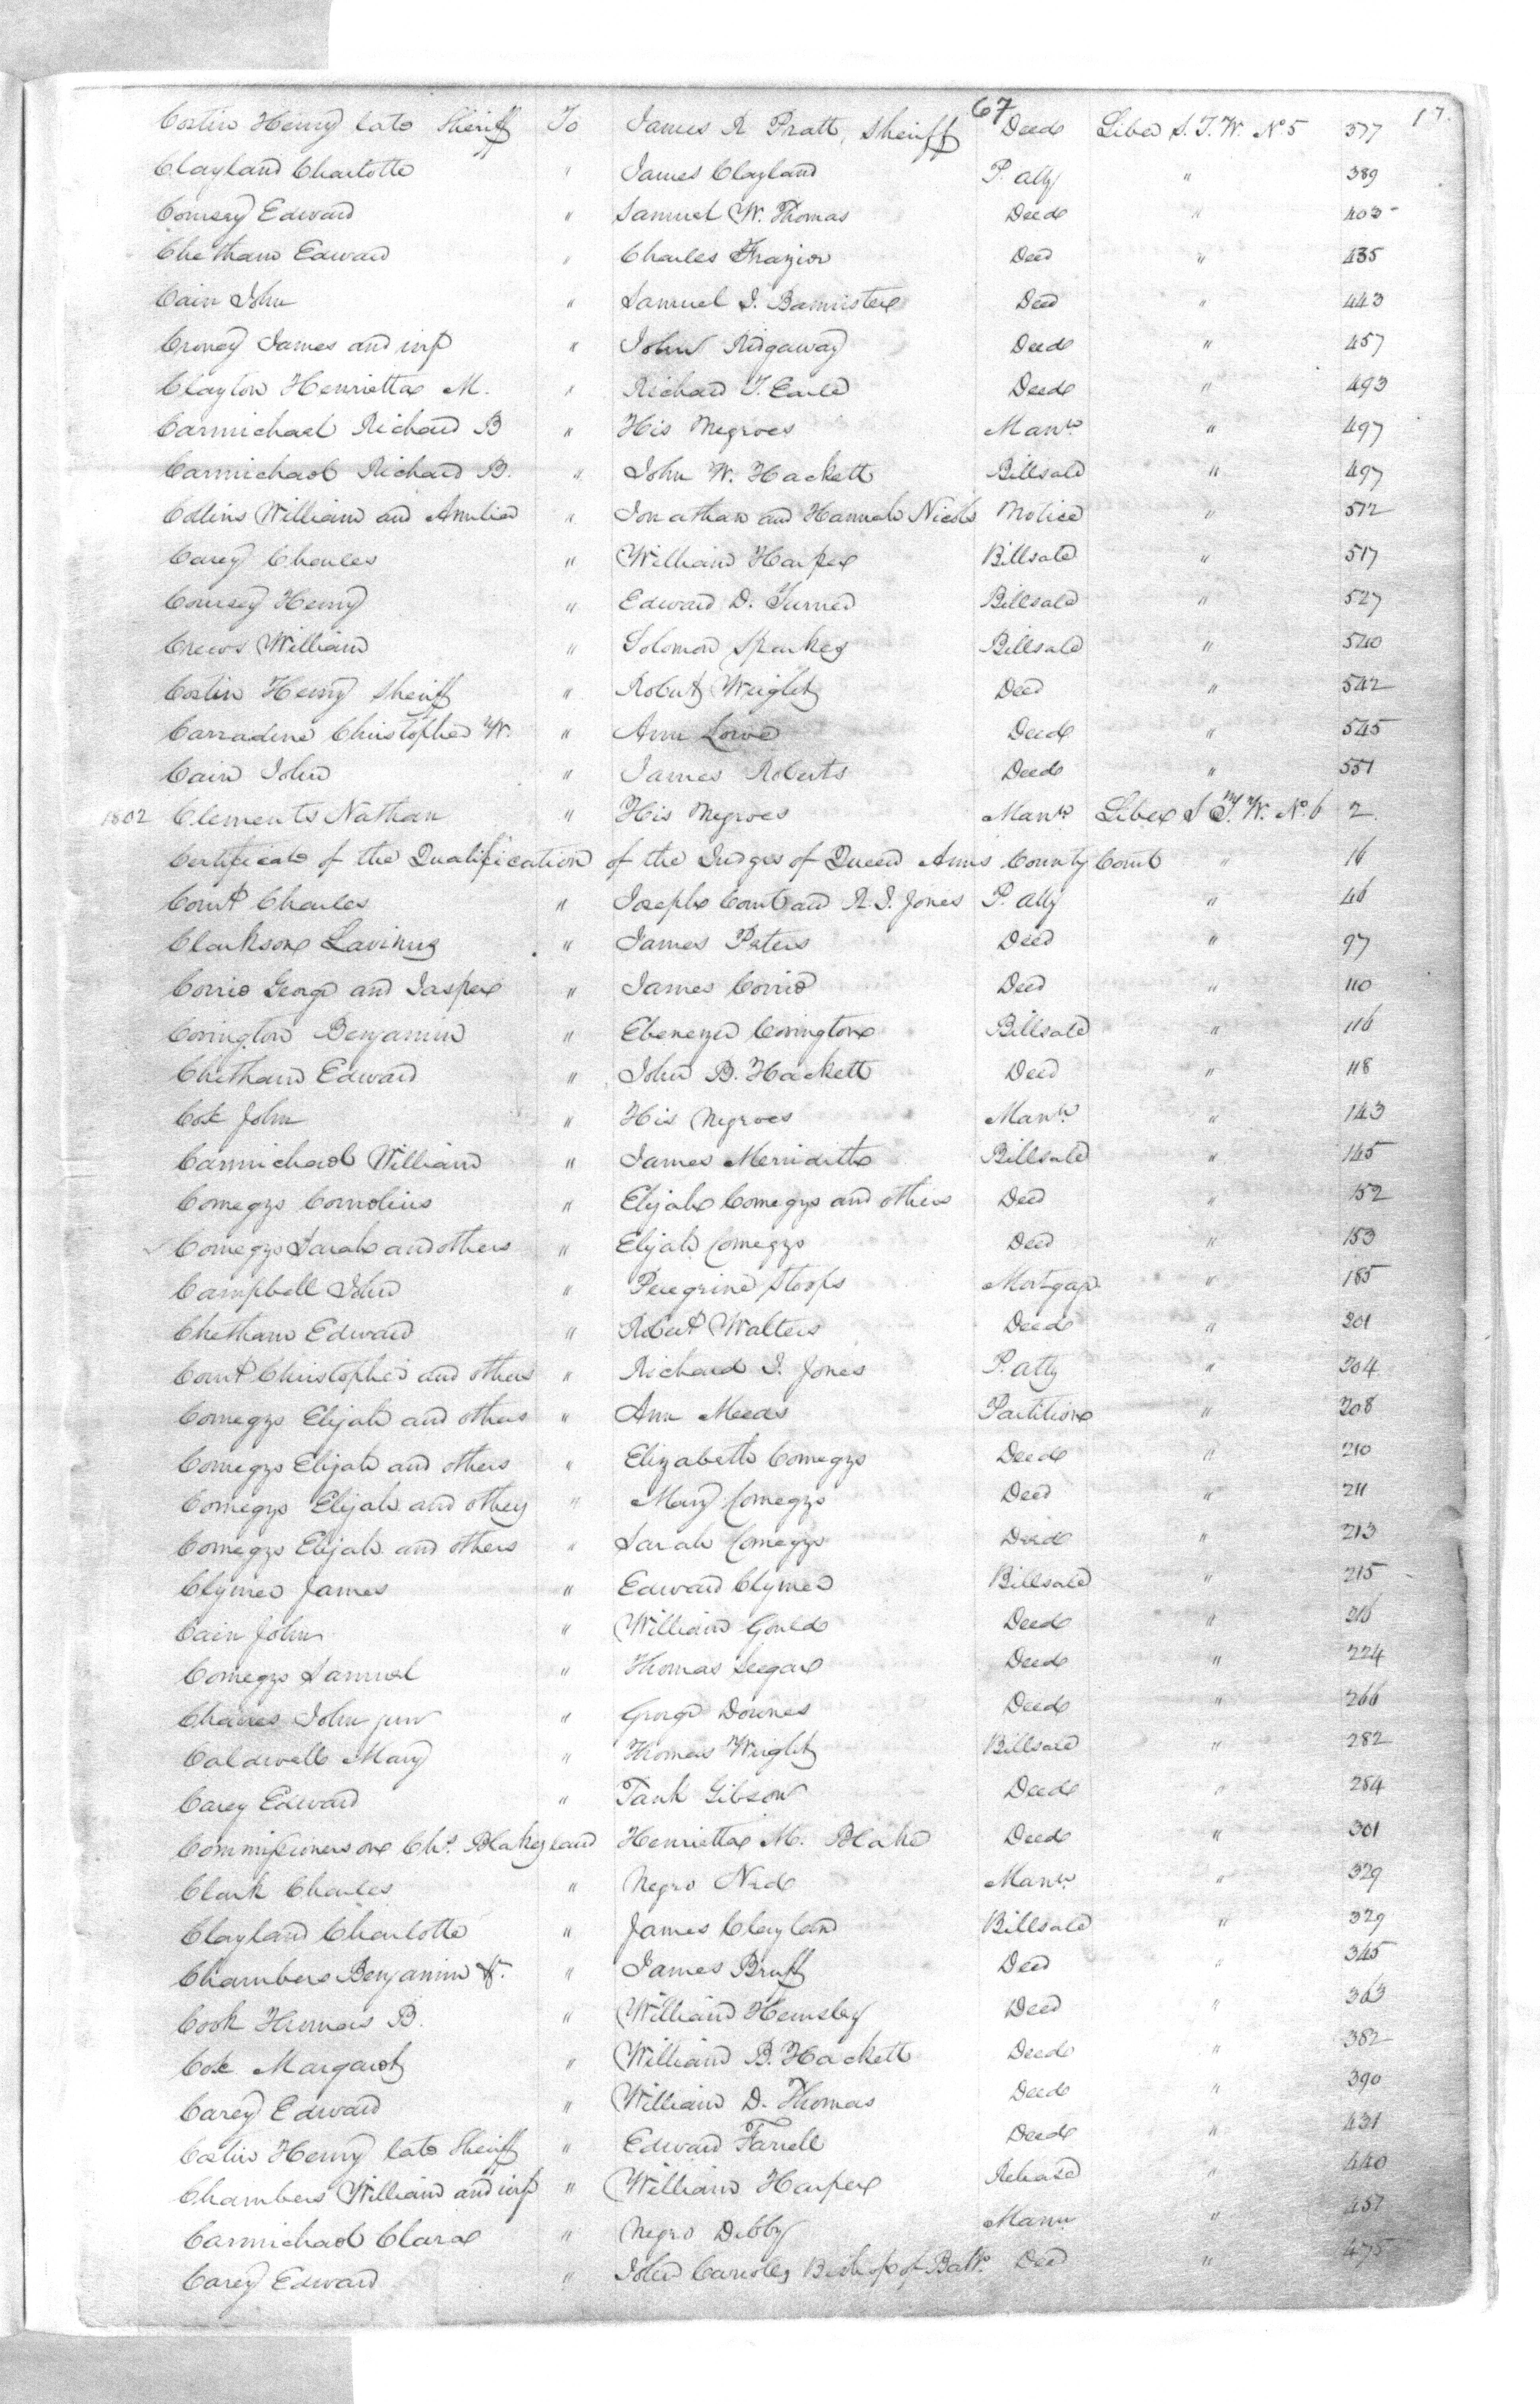 67
17.
Costin Henry late Sheriff To James R Pratt, Sheriff Deed Liber S. T. W. No 5 377
Clayland Charlotte " James Clayland P. Atty " 389
Coursey Edward " Samuel W. Thomas Deed " 403
Chetham Edward " Charles Frazier Deed " 435
Cain John " Samuel I. Bannister Deed " 443
Croney James and wife " John Ridgaway Deed " 457
Clayton Henrietta M. " Richard T. Earle Deed " 493
Carmichael Richard B " His Negroes Mann. " 497
Carmichael Richard B. " John W. Hackett Billsale " 497
Collins William and Amelia " Jonathan and Hannah Nicols Notice " 512
Carey Charles " William Harper Billsale " 517
Coursey Henry " Edward D. Turner Billsale " 527
Crews William " Solomon Sparkes Billsale " 540
Costin Henry Sheriff " Robert Wright Deed " 542
Carradine Christopher W. " Ann Lowe Deed " 545
Cain John " James Roberts Deed " 551
1802 Clements Nathan " His Negroes Mann. Liber S T. W. No. 6 2
Certificate of the Qualification of the Judges of Queen Anns County Court " 16
Court Charles " Joseph Court and R. I. Jones P. Atty " 46
Clarkson Lavinus " James Peters Deed " 97
Corrie George and Jasper " James Corrie Deed " 110
Covington Benjamin " Ebenezer Covington Billsale " 116
Chetham Edward " John B. Hackett Deed " 118
Cox John " His Negroes Mann. " 143
Carmichael William " James Merridith Billsale " 145
Comegys Cornelius " Elijah Comegys and others Deed " 152
Comegys Sarah and others " Elijah Comegys Deed " 153
Campbell John " Peregrine Stoops Mortgage " 185
Chetham Edward " Robert Walters Deed " 201
Court Christopher and others " Richard I. Jones P. Atty " 204
Comegys Elijah and others " Ann Meeds Partition " 208
Comegys Elijah and others " Elizabeth Comegys Deed " 210
Comegys Elijah and others " Mary Comegys Deed " 211
Comegys Elijah and others " Sarah Comegys Deed " 213
Clymer James " Edward Clymer Billsale " 215
Cain John " William Gould Deed " 216
Comegys Samuel " Thomas Seegar Deed " 224
Chaires John junr " George Downes Deed " 266
Caldwell Mary " Thomas Wright Billsale " 282
Carey Edward " Gibson Deed " 284
Commissioners on Chs. Blakes land Henrietta M. Blake Deed " 301
Clark Charles " Negro Ned Mann. " 329
Clayland Charlotte " James Clayland Billsale " 329
Chambers Benjamin " James Bruff Deed " 345
Cook Thomas B. " William Hemsley Deed " 363
Cox Margaret " William B. Hackett Deed " 382
Carey Edward " William D. Thomas Deed " 390
Costin Henry late Sheriff " Edward Farrell Deed " 431
Chambers William and wife " William Harper Release " 440
Carmichael Clara " Negro Debby Manu " 457
Carey Edward " John Carroll, Bishop of Balto. Deed " 475